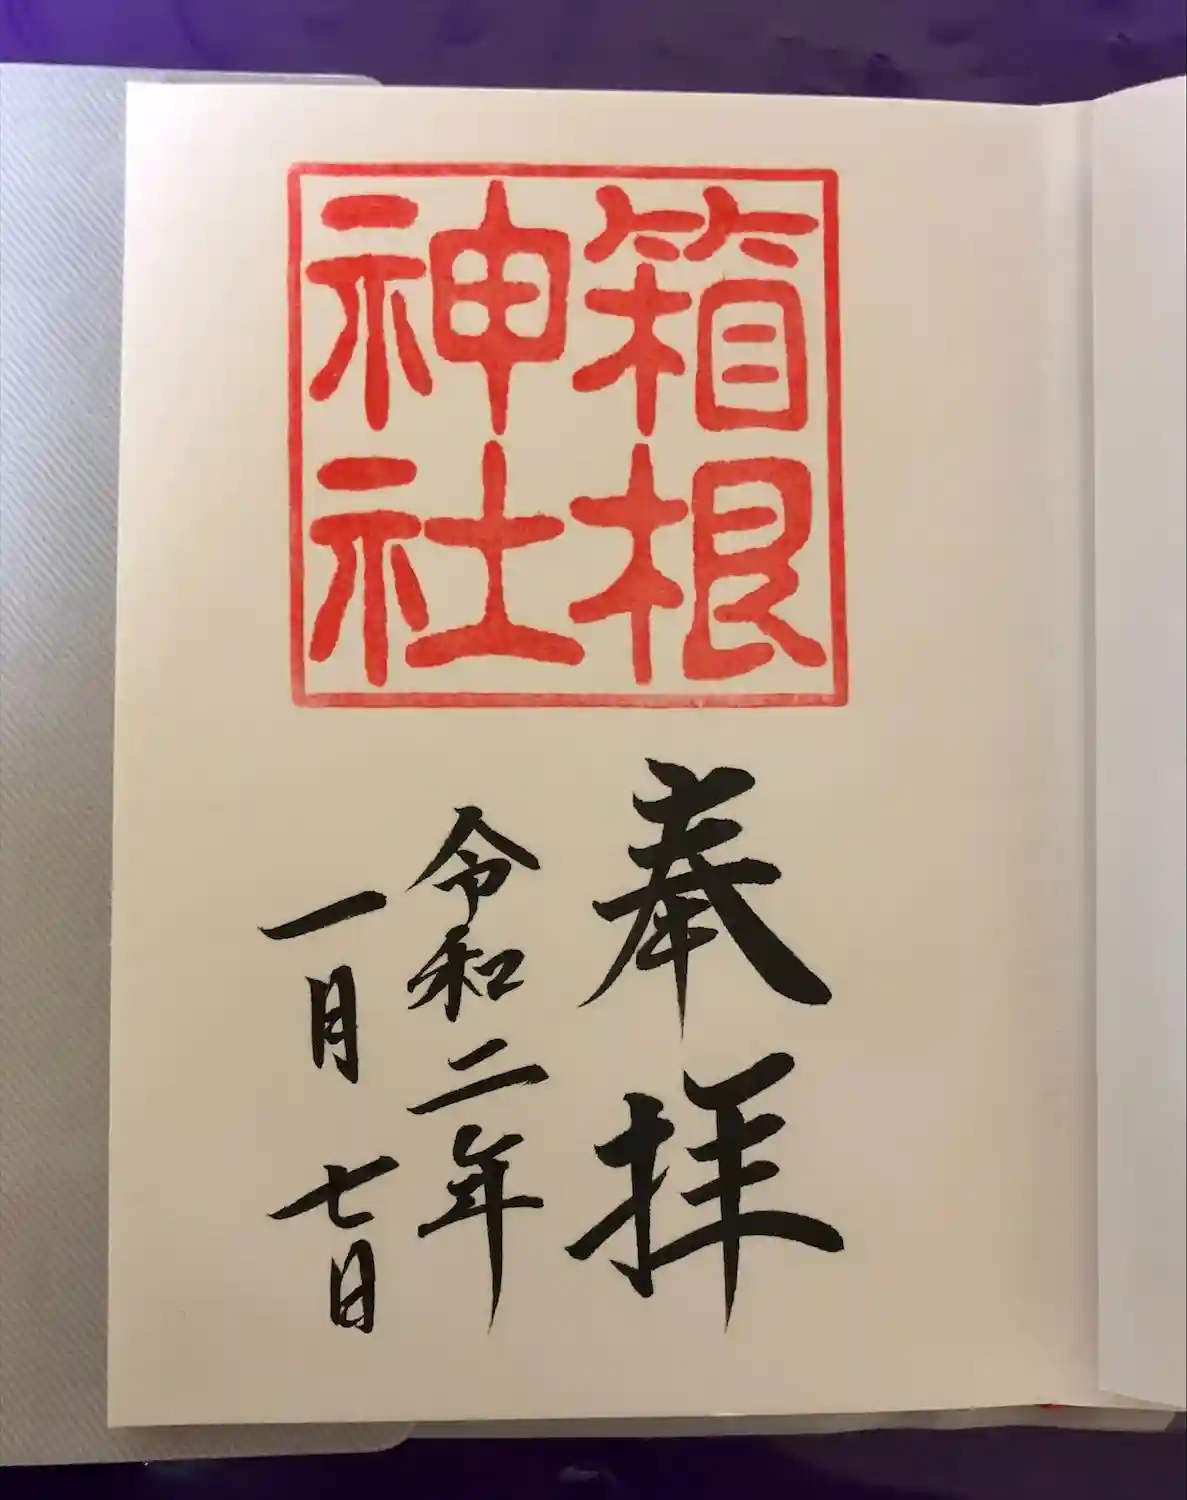 箱根
神社
奉拝
令和二年
一月七日